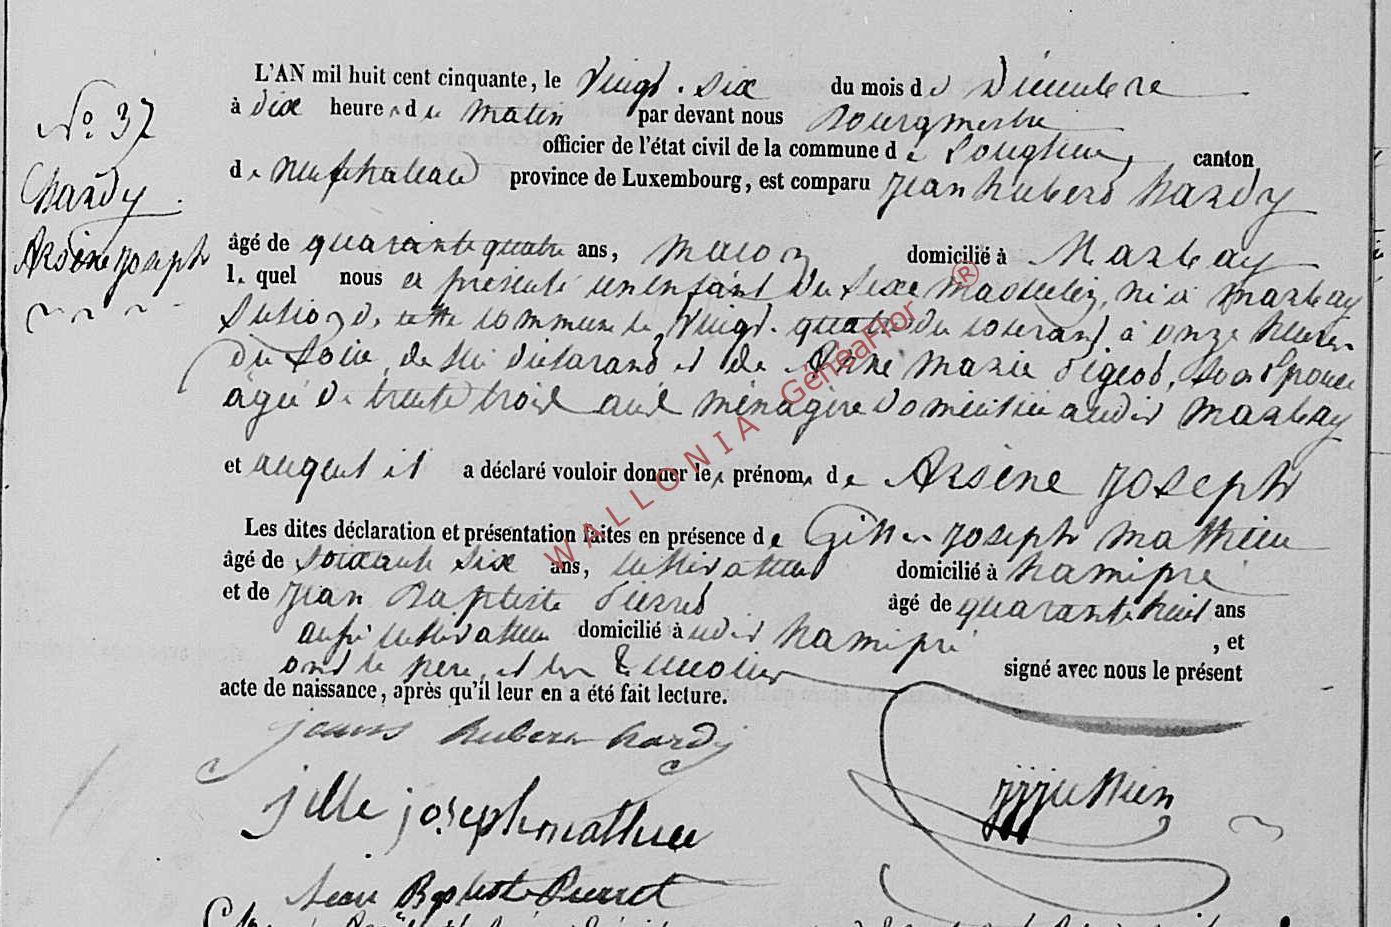 N° 37
hardy
Arsène joseph
L'AN mil huit cent cinquante, le Vingt-six du mois de Décembre
à dix heures du matin par devant nous Bourgmestre
officier de l'état civil de la commune de Longlier, canton
de Neufchateau province de Luxembourg, est comparu jean hubert hardy
âgé de quarante quatre ans, macon domicilié à Marbay
lequel nous a présenté un enfant du sexe Masculin, né à marbay
section de cette commune le vingt-quatre du courant à onze heures
du soir, de lui déclarant et de Anne Marie Pigeot, son Epouse
agée de trente trois ans ménagère domiciliée audit Marbay
et auquel il a déclaré vouloir donner les prénoms de Arsène joseph
Les dites déclaration et présentation faites en présence de Gilles joseph mathieu
âgé de soixante six ans, cultivateur domicilié à hamipré
et de jean Baptiste Pierret âgé de quarante huit ans
aussi cultivateur domicilié à udit hamipré, et
ont le père et les témoins signé avec nous le présent
acte de naissance, après qu'il leur en a été fait lecture.
hubert hardy
jille joseph mathieu
jean Baptiste Pierret
WALLONIA GénéaFlor ®